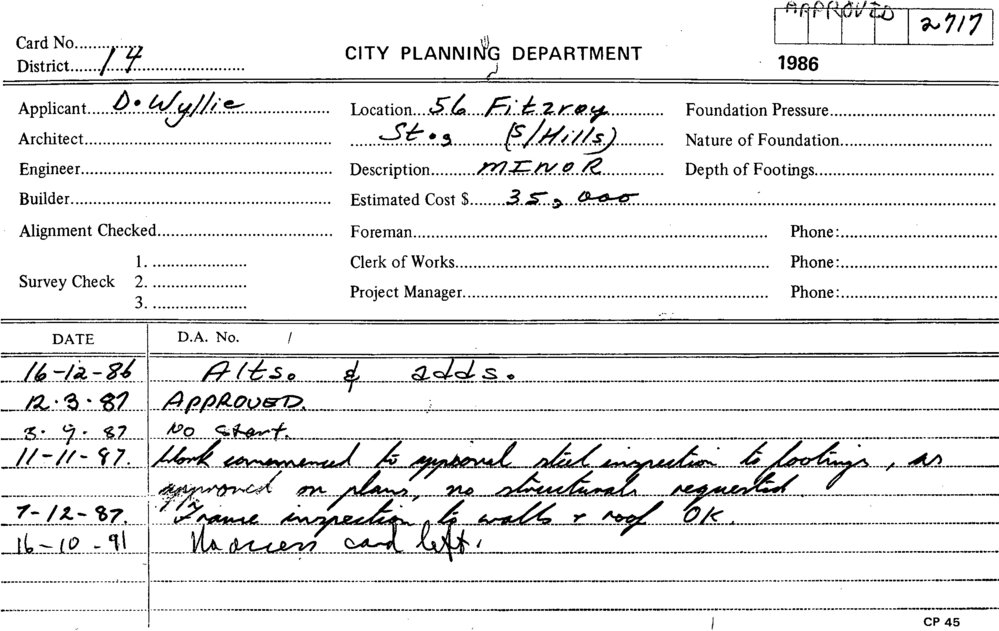 APPROVED
2717
Card No.
District 14
CITY PLANNING DEPARTMENT
1986
Applicant D. Wyllie
Location 56 Fitzroy
Foundation Pressure
Architect
St., (S/Hills)
Nature of Foundation
Engineer
Description MINOR
Depth of Footings
Builder
Estimated Cost $ 35,000
Alignment Checked
Foreman
Phone:
Survey Check
1.
2.
3.
Clerk of Works
Phone:
Project Manager
Phone:
DATE D.A. No. /
16-12-86 Alts. & adds.
12.3.87 APPROVED.
3.9.87 No start.
11-11-87. Work commenced to approval steel inspection to footings, as
approved on plans, no structurals requested.
7-12-87. Frame inspection to walls & roof OK.
16-10-91 No access card left.
CP 45